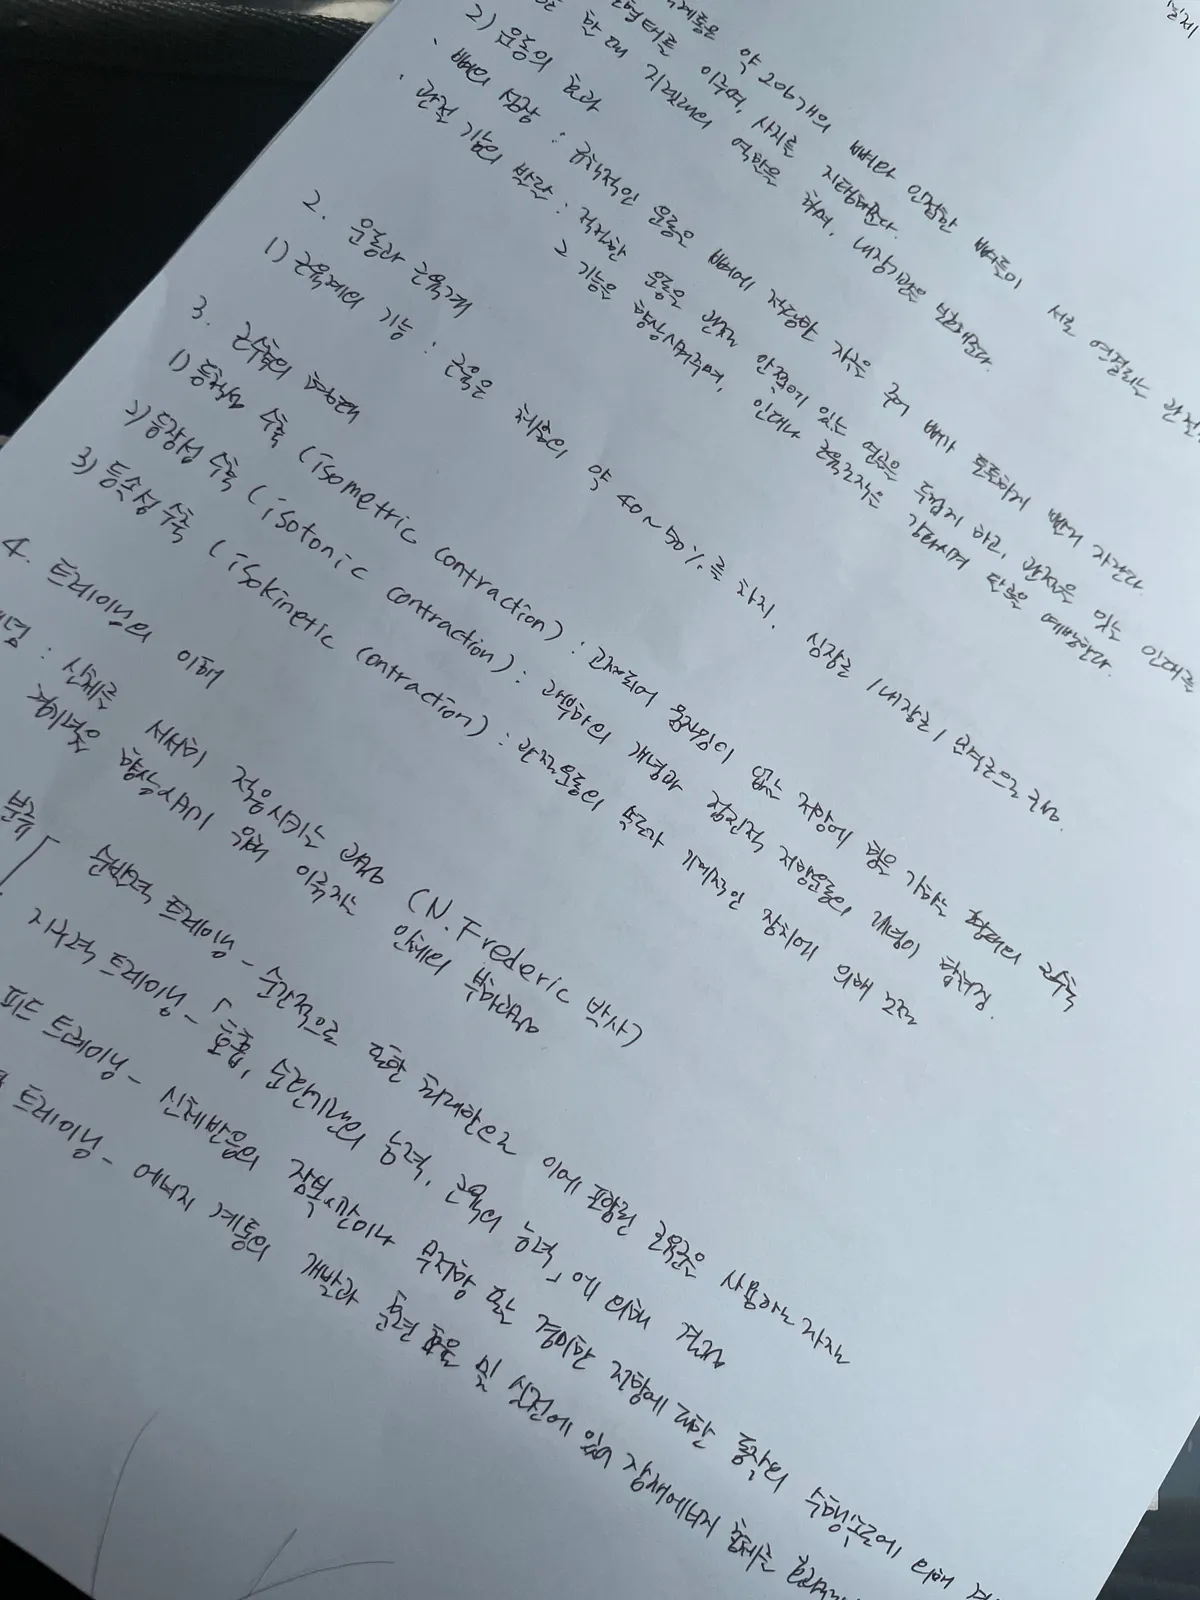 계통은 약 206개의 뼈와 인접한 뼈들이 서로 연결되는 관절
형태를 이루며, 사지를 지탱해준다.
한 대 지렛대의 역할을 하며, 내장기관을 보호해준다.
2) 운동의 효과
· 뼈의 성장 : 규칙적인 운동은 뼈에 적당한 자극을 주어 뼈가 튼튼하게 빨리 자란다.
· 관절 기능의 발달 : 적당한 운동은 관절 안쪽에 있는 연골을 두껍게 하고, 관절을 잇는 인대를
기능을 향상시켜주며, 인대나 근육조직을 강화시켜 탈구를 예방한다.
2. 운동과 근육계
1) 근육계의 기능 : 근육은 체중의 약 40~50%를 차지. 심장근 / 내장근 / 골격근으로 구성.
3. 근수축의 형태
1) 등척성 수축 (isometric contraction) : 고정되어 움직임이 없는 저항에 힘을 가하는 형태의 근수축
2) 등장성 수축 (isotonic contraction) : 과부하의 개념과 점진적 저항운동의 개념이 합쳐짐.
3) 등속성 수축 (isokinetic contraction) : 관절운동의 속도가 기계적인 장치에 의해 고정
4. 트레이닝의 이해
: 신체를 서서히 적응시키는 과정 (N.Frederic 박사)
경기력을 향상시키기 위해 이루지는 인체의 부하과정
분류 순발력 트레이닝 - 순간적으로 또한 최대한으로 이에 포함된 근육군을 사용하는 자질
지구력 트레이닝 - 「호흡, 순환기관의 능력, 근육의 능력」에 의해 결정
피드 트레이닝 - 신체반응의 잠복시간이나 무저항 또는 경미한 저항에 대한 동작의 수행속도에 의해
트레이닝 - 에너지 계통의 개발과 훈련 효율 및 실전에 있어 잠재에너지 출력을